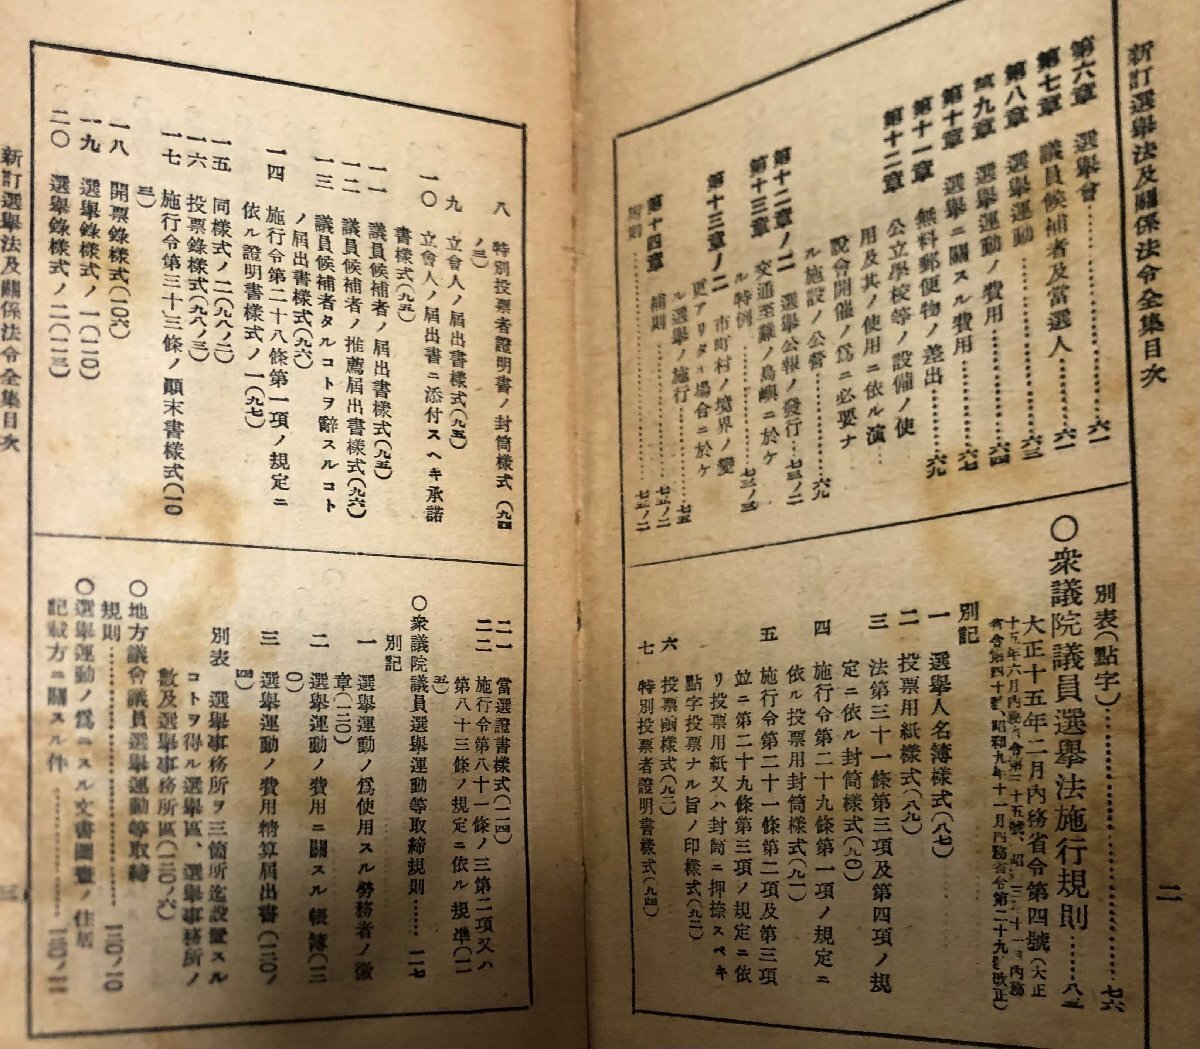 新訂選擧法及關係法令全集目次
二
第六章 選擧會……六一
第七章 議員候補者及當選人……六一
第八章 選擧運動……六三
第九章 選擧運動ノ費用……六四
第十章 選擧ニ關スル費用……六七
第十一章 無料郵便物ノ差出……六九
第十二章 公立學校等ノ設備ノ使
用及其ノ使用ニ依ル演
說會開催ノ爲ニ必要ナ
ル施設ノ公營……六九
第十二章ノ二 選擧公報ノ發行……七三ノ二
第十三章 交通至難ノ島嶼ニ於ケ
ル特例……七三ノ三
第十三章ノ二 市町村ノ境界ノ變
更アリタル場合ニ於ケ
ル選擧ノ施行……七五
第十四章 補則……七五ノ二
附則……七五ノ二
別表(點字)……七六
○衆議院議員選擧法施行規則……八三
大正十五年二月內務省令第四號(大正
十五年六月內務省令第二十五號、昭
省令第四十號、昭和九年十一月內務省令第二十九號改正)
別記
一 選擧人名簿樣式(八七)
二 投票用紙樣式(八九)
三 法第三十一條第三項及第四項ノ規
定ニ依ル封筒樣式(九〇)
四 施行令第二十九條第一項ノ規定ニ
依ル投票用封筒樣式(九一)
五 施行令第二十一條第二項及第三項
竝ニ第二十九條第三項ノ規定ニ依
リ投票用紙又ハ封筒ニ押捺スベキ
點字投票ナル旨ノ印樣式(九二)
六 投票凾樣式(九三)
七 特別投票者證明書樣式(九四)
八 特別投票者證明書ノ封筒樣式(九四
ノ三)
九 立會人ノ屆出書樣式(九五)
一〇 立會人ノ屆出書ニ添付スヘキ承諾
書樣式(九五)
一一 議員候補者ノ屆出書樣式(九五)
一二 議員候補者ノ推薦屆出書樣式(九六)
一三 議員候補者タルコトヲ辭スルコト
ノ屆出書樣式(九六)
一四 施行令第二十八條第一項ノ規定ニ
依ル證明書樣式ノ一(九七)
一五 同樣式ノ二(九八ノ二)
一六 投票錄樣式(九八ノ三)
一七 施行令第三十三條ノ顚末書樣式(一〇
三)
一八 開票錄樣式(一〇六)
一九 選擧錄樣式ノ一(一二〇)
二〇 選擧錄樣式ノ二(一二三)
二一 當選證書樣式(一二四)
二二 施行令第八十一條ノ三第二項又ハ
第八十三條ノ規定ニ依ル規準(一二
五)
○衆議院議員選擧運動等取締規則……一二七
別記
一 選擧運動ノ爲使用スル勞務者ノ徽
章(一三〇)
二 選擧運動ノ費用ニ關スル帳簿(一三
〇)
三 選擧運動ノ費用精算屆出書(一三〇ノ
四)
別表 選擧事務所ヲ三箇所迄設置スル
コトヲ得ル選擧區、選擧事務所ノ
數及選擧事務所區(一三〇ノ六)
○地方議會議員選擧運動等取締
規則……一三〇ノ一〇
○選擧運動ノ爲ニスル文書圖畫ノ住居
記載方ニ關スル件……一三〇ノ一二
新訂選擧法及關係法令全集目次
三